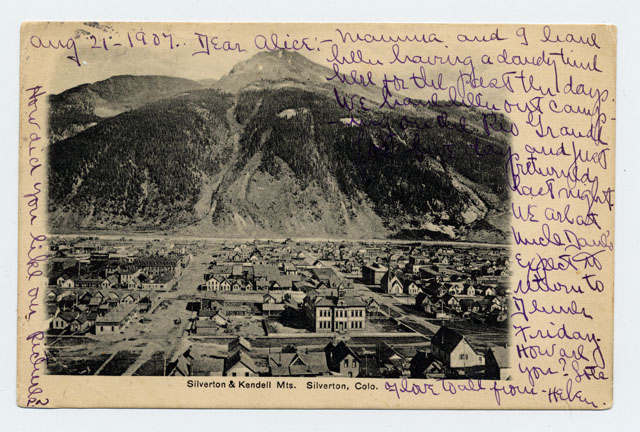 Aug 21-1907. Dear Alice:- Mamma and I have
been having a dandy time
here for the past ten days.
We have been out camp-
ing on the Rio Grande
days and just
returned
last night.
We are at
Uncle
Expect to
return to
Denver
Friday.
How are
you? Lots
of love to all from Helen.
How did you like our
Silverton & Kendell Mts. Silverton, Colo.